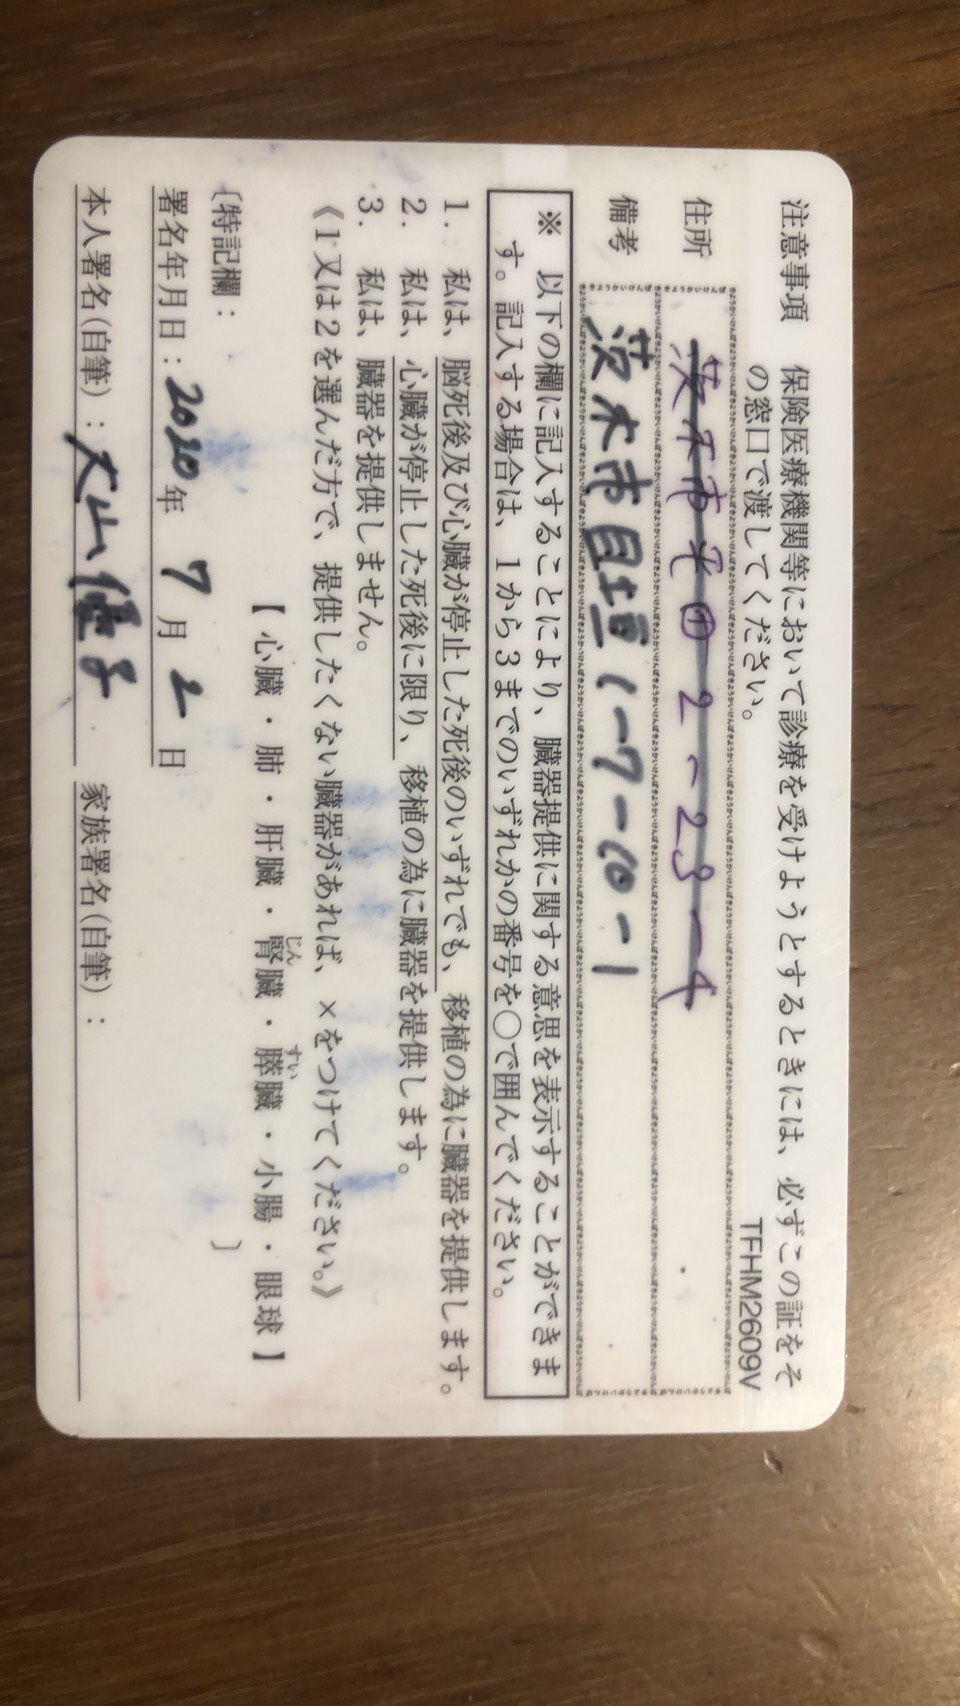 注意事項　保険医療機関等において診療を受けようとするときには、必ずこの証をそ
の窓口で渡してください。
TFHM2609V
住所　茨木市平田2-23-4
備考　茨木市目垣1-7-10-1
※　以下の欄に記入することにより、臓器提供に関する意思を表示することができま
す。記入する場合は、1から3までのいずれかの番号を○で囲んでください。
1.　私は、脳死後及び心臓が停止した死後のいずれでも、移植の為に臓器を提供します。
2.　私は、心臓が停止した死後に限り、移植の為に臓器を提供します。
3.　私は、臓器を提供しません。
《1又は2を選んだ方で、提供したくない臓器があれば、×をつけてください。》
じん　すい
【 心臓・肺・肝臓・腎臓・膵臓・小腸・眼球 】
〔特記欄：　〕
署名年月日：2020年 7月 2日
本人署名(自筆)：大山優子　家族署名(自筆)：